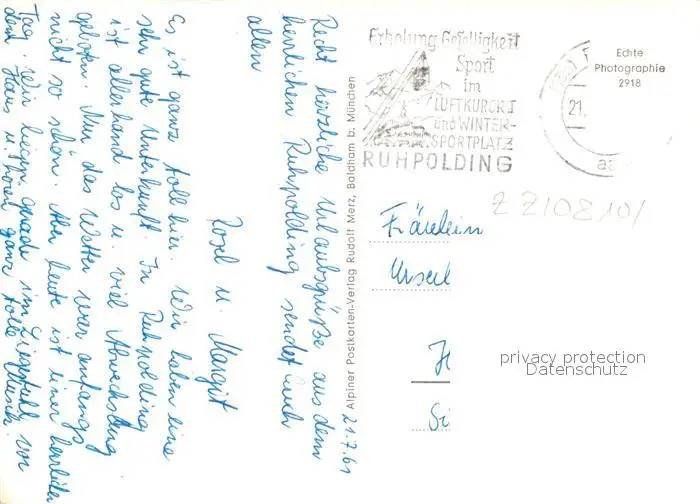 Recht herzliche Urlaubsgrüße aus dem
herrlichen Ruhpolding sendet Euch
allen
Rosel u. Margit
Es ist ganz toll hier. Wir haben eine
sehr gute Unterkunft. In Ruhpolding
ist allerhand los u. viel Abwechslung
geboten. Nur das Wetter war anfangs
nicht so schön. Aber heute ist einer herrlicher
Tag. Wir liegen gerade im Liegestuhl vor
dem Haus u. hören ganz tolle Musik.
21.7.61
Alpiner Postkarten-Verlag Rudolf Merz, Baldham b. München
Erholung·Geselligkeit
Sport
im
LUFTKURORT
und WINTER-
SPORTPLATZ
RUHPOLDING
21.
Echte
Photographie
2918
Fräulein
privacy protection
Datenschutz